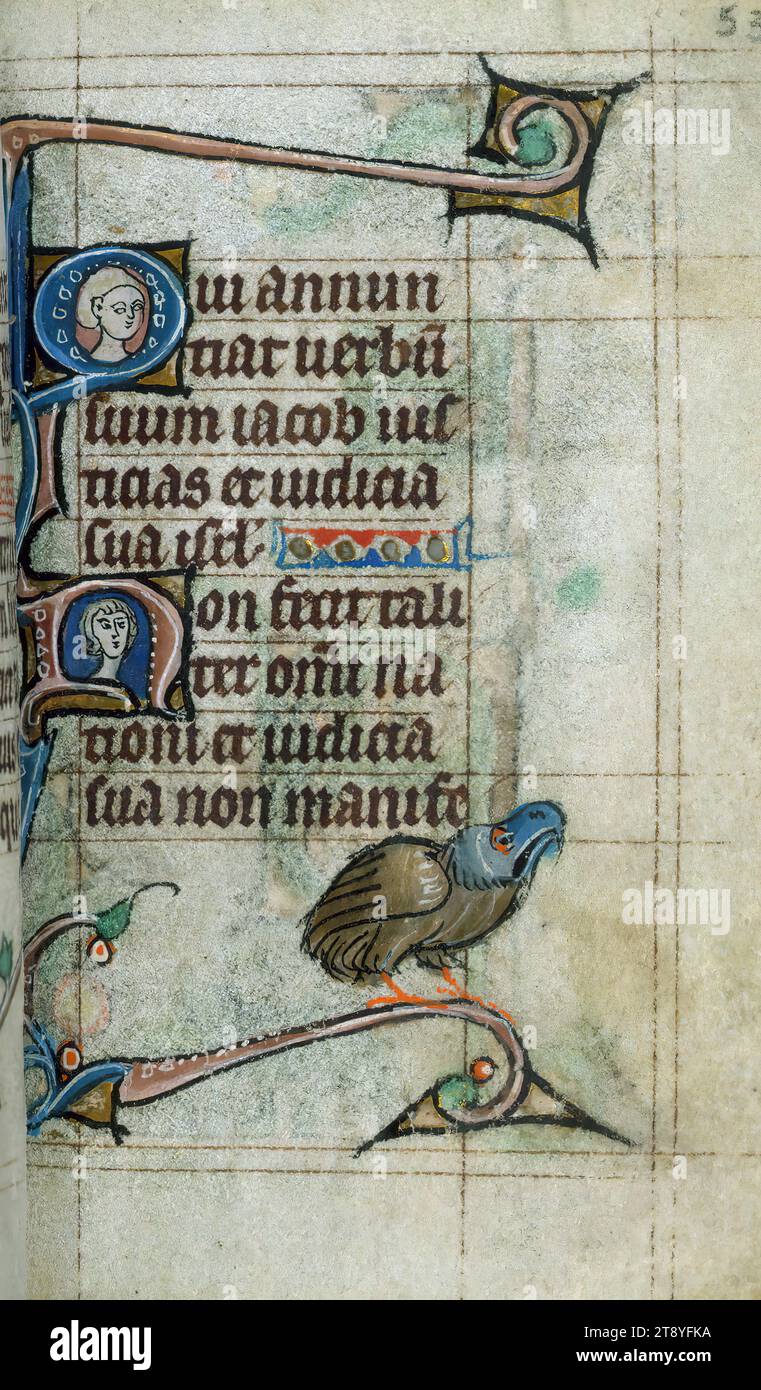 53
Qui annun
tiat uerbū
suum iacob iuis
ticias et iudicia
sua isrl
Non fecit tali
ter om̄i na
tioni et iudicia
sua non manife
alamy
alamy
alamy
a
a
alamy
Image ID: 2T8YFKA
www.alamy.com